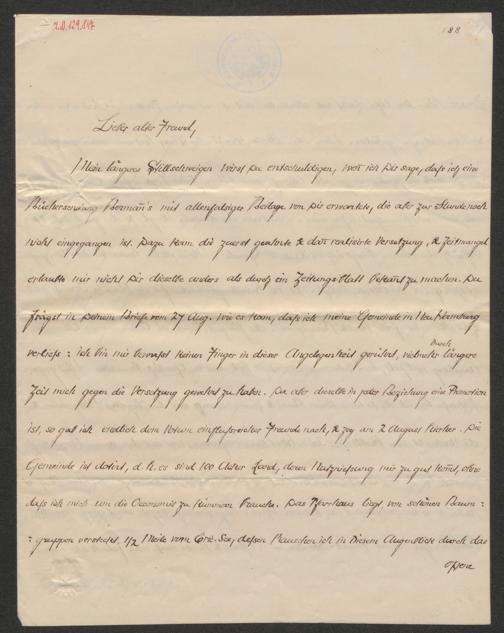 I.N. 129.147
188
Lieber alter Freund,
Mein längeres Stillschweigen wirst Du entschuldigen, wen̄ ich Dir sage, daß ich eine
Büchersendung Berman̄'s mit allenfalsiger Beilage von Dir erwartete, die aber zur Stunde noch
nicht eingegangen ist. Dazu kam die zuerst geahnte & dan̄ realisirte Versetzung, & Zeitmangel
erlaubte mir nicht Dir dieselbe anders als durch ein Zeitungsblatt bekan̄t zu machen. Du
frägst in Deinem Briefe vom 27 Aug. wie es kam, daß ich meine Gemeinde in Neu Hamburg
verließ: ich bin mir bewußt keinen Finger in dieser Angelegenheit gerührt, vielmehr durch längere
Zeit mich gegen die Versetzung gewehrt zu haben. Da aber dieselbe in jeder Beziehung eine Promotion
ist, so gab ich endlich dem Votum einflußreicher Freunde nach, & zog am 2 August hierher. Die
Gemeinde ist dotirt, d. h. es sind 100 Acker Land, deren Nutznießung mir zu gut kom̄t, ohne
daß ich mich um die Oeconomie zu küm̄ern brauche. Das Pfarrhaus liegt, von schönen Baum-
-gruppen versteckt, 1/2 Meile vom Erie See, deßen Rauschen ich in diesem Augenblicke durch das
offene